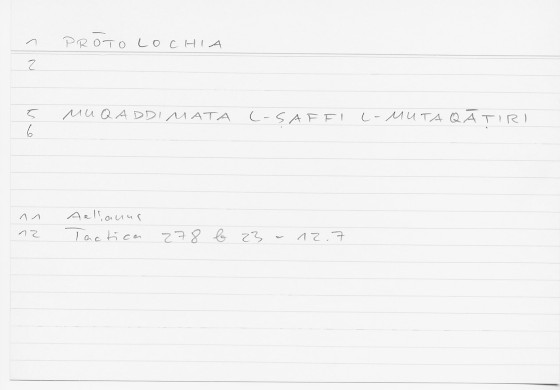 1 PRŌTOLOCHIA
2
5 MUQADDIMATA L-ṢAFFI L-MUTAQĀṬIRI
6
11 Aelianus
12 Tactica 278 b 23 - 12.7